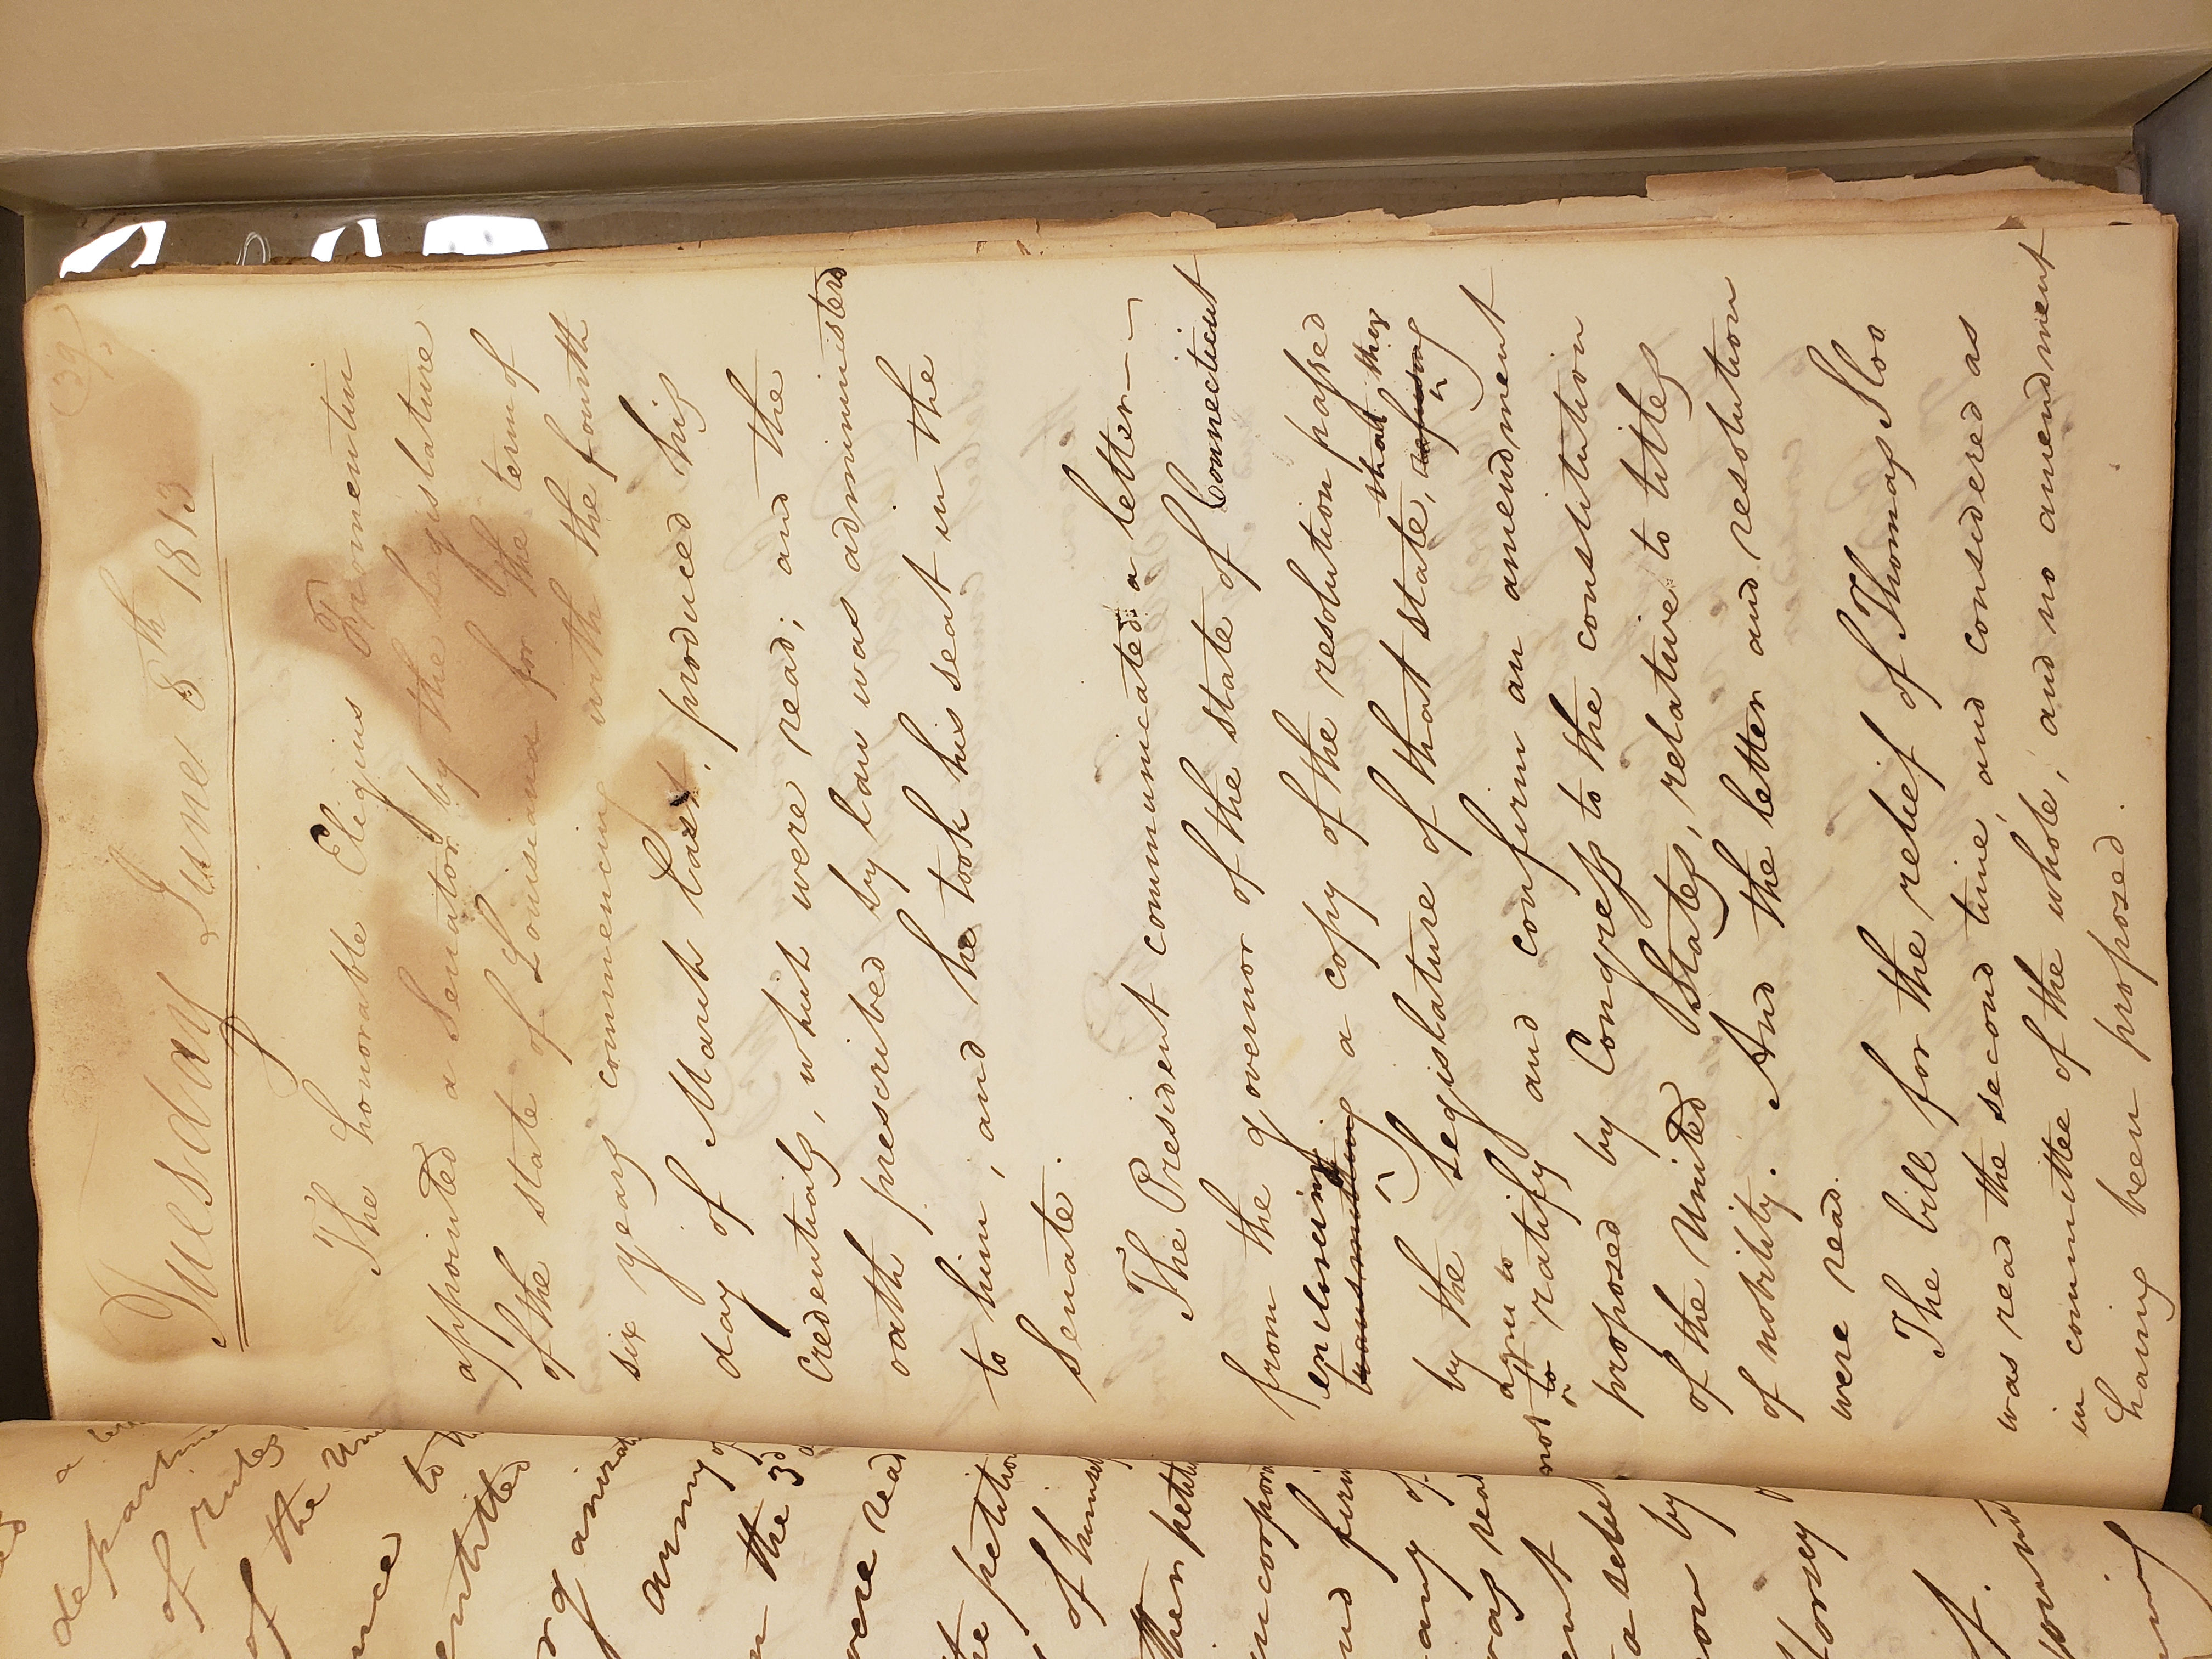 39
Tuesday June 8th 1813
The honorable Eligius Fromentin
appointed a Senator by the legislature
of the state of Louisiana for the term of
six years commencing with the fourth
day of March last, produced his
credentials, which were read; and the
oath prescribed by law was administered
to him, and he took his seat in the
Senate.
The President communicated a letter
from the governor of the state of Connecticut
enclosing
transmitting a copy of the resolution passed
that they
by the Legislature of that state, refusing
do not agree to
to ratify and confirm an amendment
proposed by Congress to the constitution
of the United States, relative to titles
of nobility. And the letter and resolution
were read.
The bill for the relief of Thomas Sloo
was read the second time, and considered as
in committee of the whole, and no amendment
having been proposed.
a
departm
of rules
of the Un
to
entitled
organiza
army of
the 3d
were read
petition
of himself
their petit
incorpor
and
any of
was read
a select
by
Dorsey
of